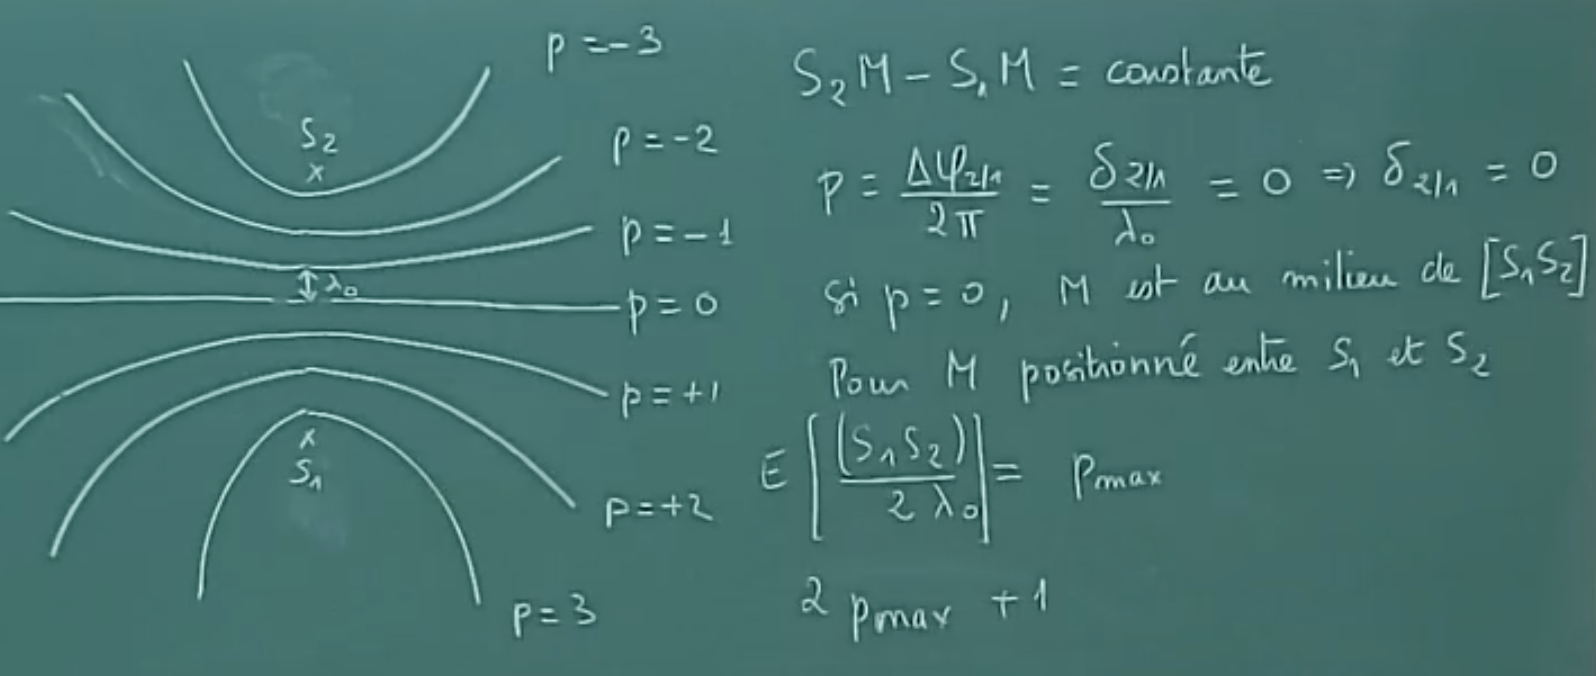 p = -3
S₂
×
p = -2
p = -1
λ₀
p = 0
p = +1
×
S₁
p = +2
p = 3
S₂M - S₁M = constante
p = Δφ₂/₁ / 2π = δ₂/₁ / λ₀ = 0 => δ₂/₁ = 0
si p = 0, M est au milieu de [S₁S₂]
Pour M positionné entre S₁ et S₂
E[(S₁S₂) / 2λ₀] = pmax
2 pmax + 1